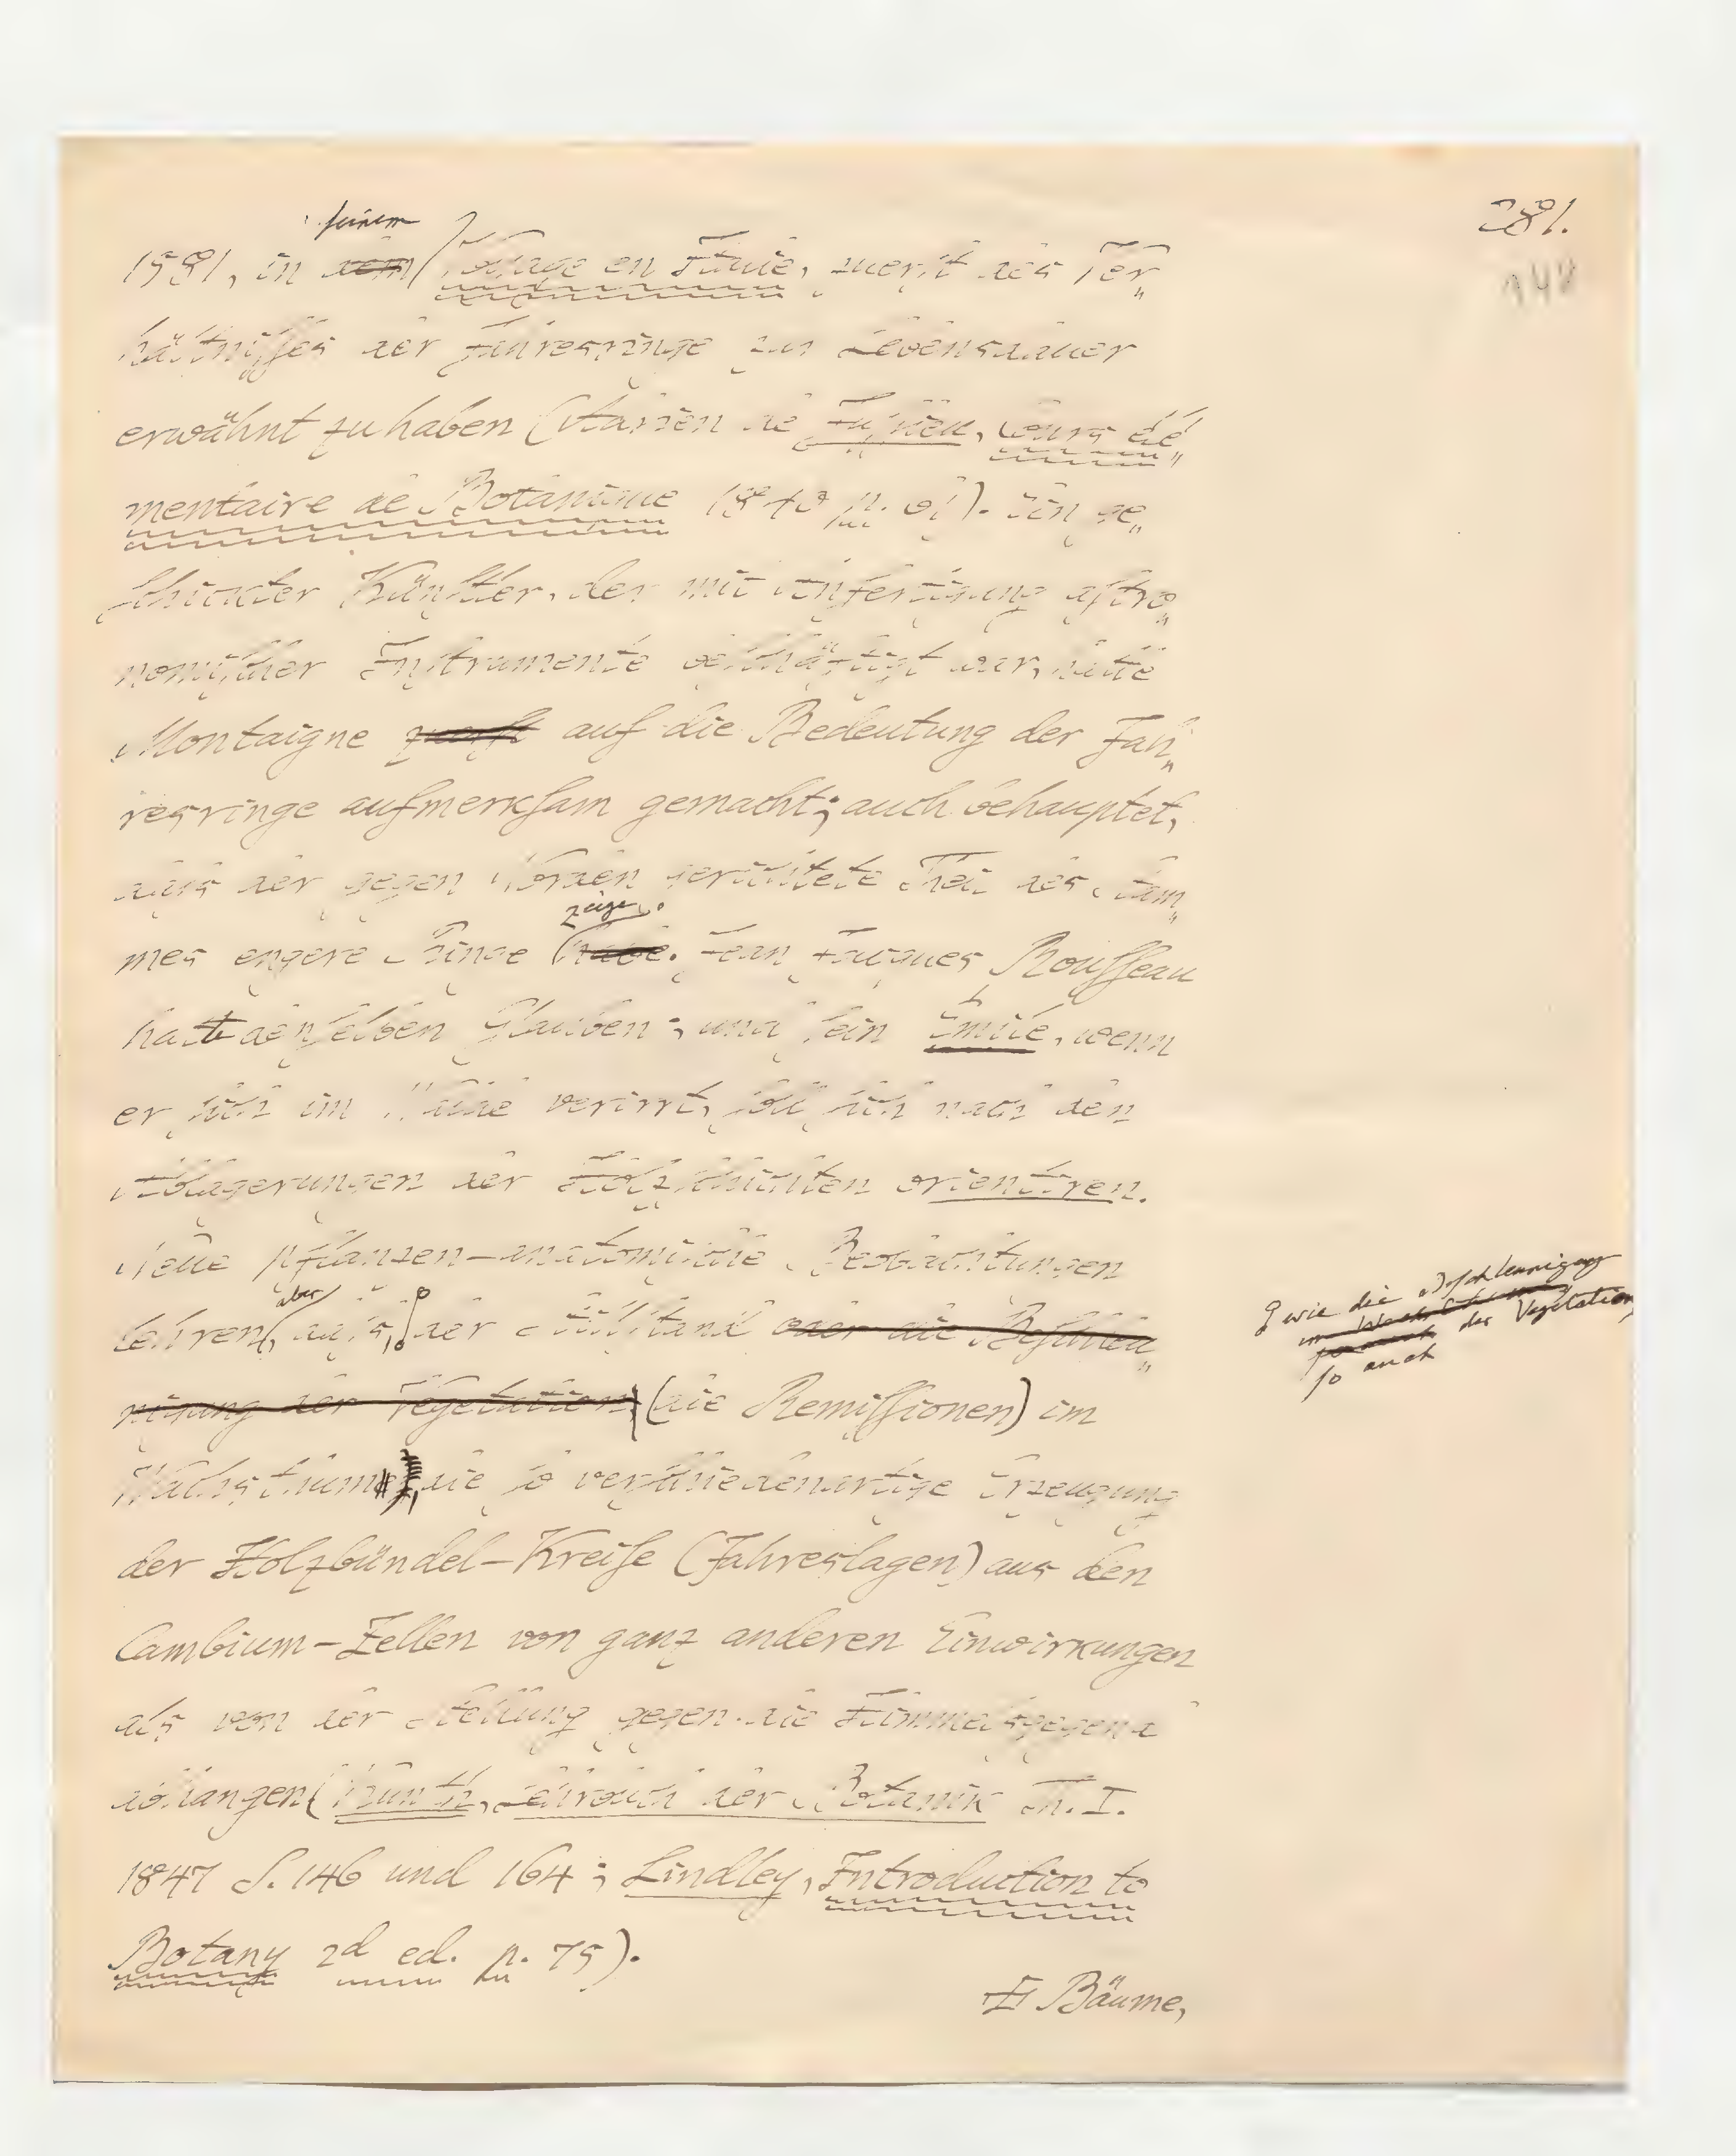 281.
148
seinem
1581, in dem Voyage en Italie, zuerst des Ver„
hältnisses der Jahresringe zur Lebensdauer
erwähnt zu haben (Adrien de Jussieu, Cours élé„
mentaire de Botanique 1840 p. 61). Ein ge„
schickter Künstler, der mit Anfertigung astro„
nomischer Instrumente beschäftigt war, hatte
Montaigne zuerst auf die Bedeutung der Jah„
resringe aufmerksam gemacht; auch behauptet,
dass der gegen Norden gerichtete Theil des Stam„
zeige.
mes engere Ringe habe. Jean Jacques Rousseau
hatte denselben Glauben; und sein Emile, wenn
er sich im Walde verirrt, soll sich nach den
Ablagerungen der Holzschichten orientiren.
Neue pflanzen-anatomische Beobachtungen
aber
lehren, dass, der Stillstand oder die Beschleu„
nigung der Vegetation, (die Remissionen) im
wie die Beschleunigung
der Vegetation,
so auch
Wachsthum, die so verschiedenartige Erzeugung
der Holzbündel-Kreise (Jahreslagen) aus den
Cambium-Zellen von ganz anderen Einwirkungen
als von der Stellung gegen die Himmelsgegend
abhangen (Kunth, Lehrbuch der Botanik Th. I.
1847 S. 146 und 164; Lindley, Introduction to
Botany 2d ed. p. 75).
Bäume,